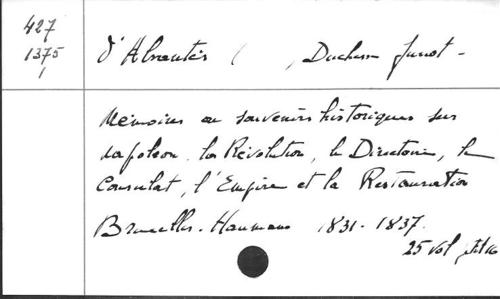 427
1375
1
d'Abrantès ( , Duchesse Junot -
Mémoires ou souvenirs historiques sur
Napoléon, la Révolution, le Directoire, le
Consulat, l'Empire et la Restauration
Bruxelles. Haumann 1831-1837.
25 vol petit 16